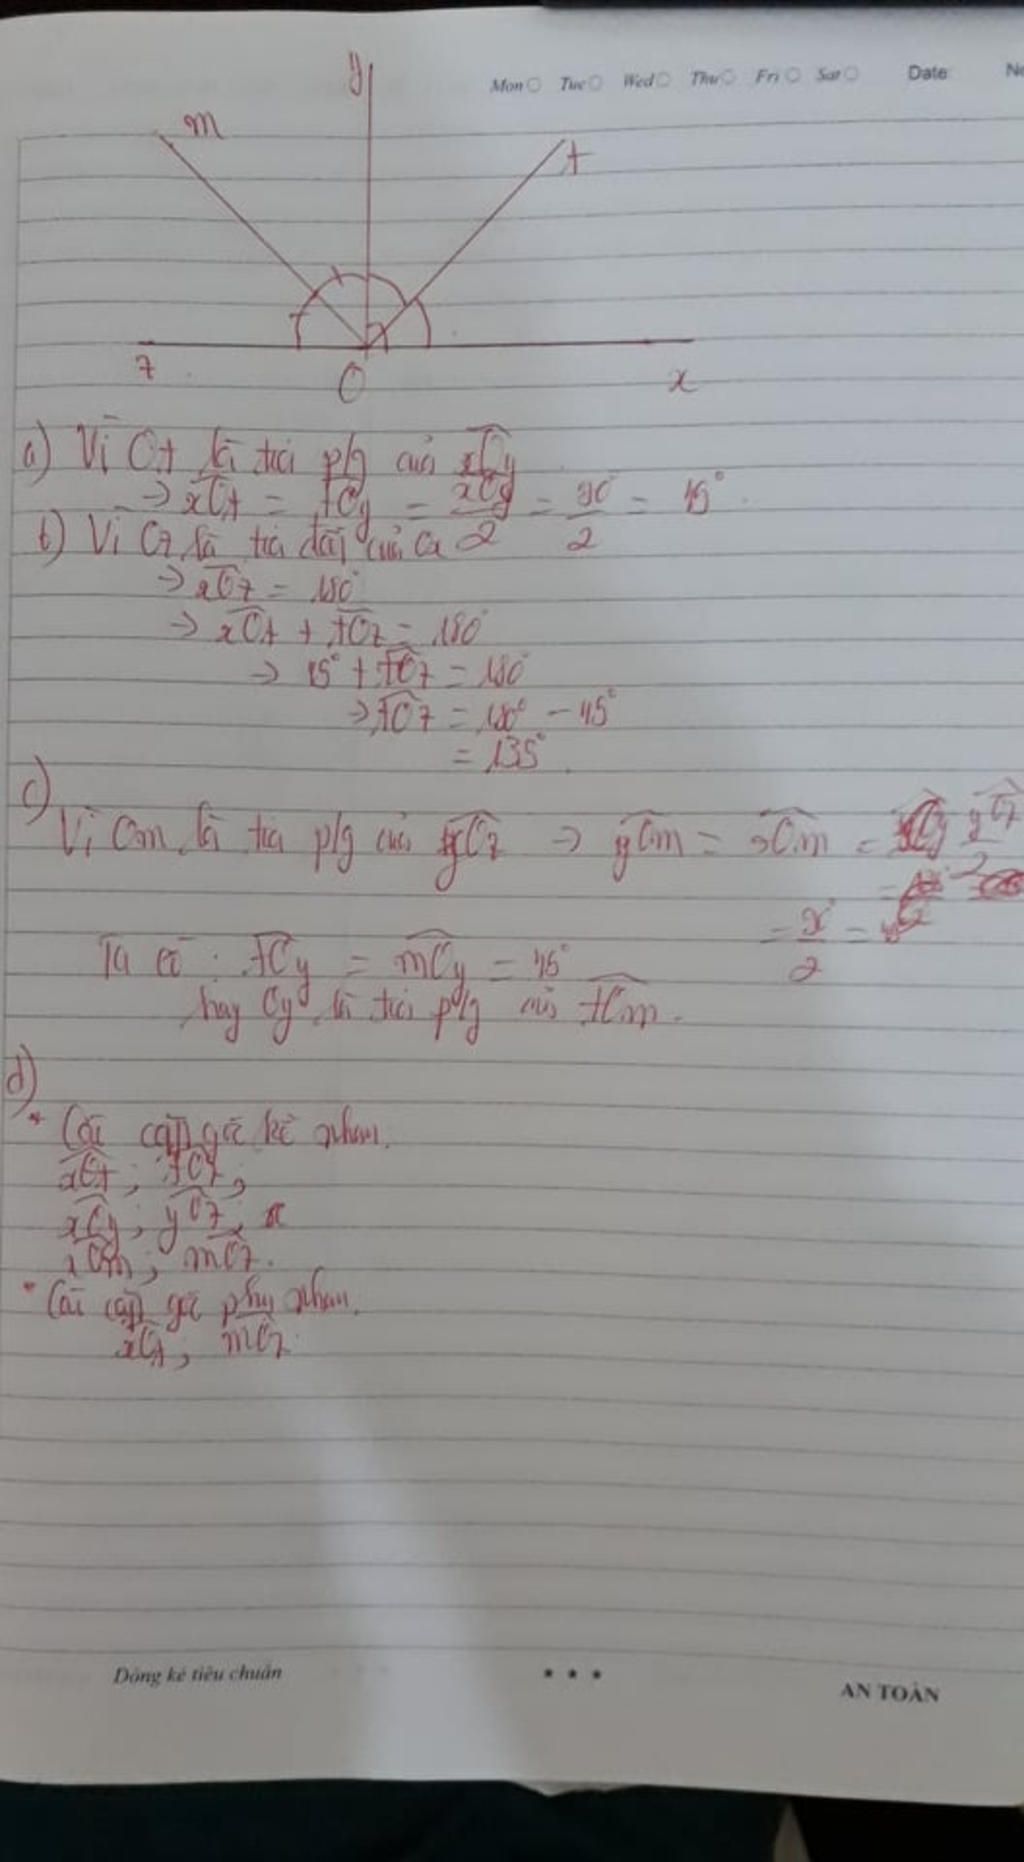 Mon Tue Wed Thu Fri Sat Date No
y
m
t
z
O
x
a) Vì Ot là tia p/g của xOy
→ xOt = tOy = xOy/2 = 90°/2 = 45°.
b) Vì Oz là tia đối của Ox
→ xOz = 180°
→ xOt + tOz = 180°
→ 45° + tOz = 180°
→ tOz = 180° - 45°
= 135°.
c)
Vì Om là tia p/g của yOz → yOm = zOm = yOz/2
= 90°/2 = 45°
Ta có: tOy = mOy = 45°
hay Oy là tia p/g của tOm.
d)
* Các cặp góc kề nhau.
xOt; tOz;
xOy; yOz;
xOm; mOz.
* Các cặp góc phụ nhau.
xOt; mOz.
Dòng kẻ tiêu chuẩn
AN TOÀN